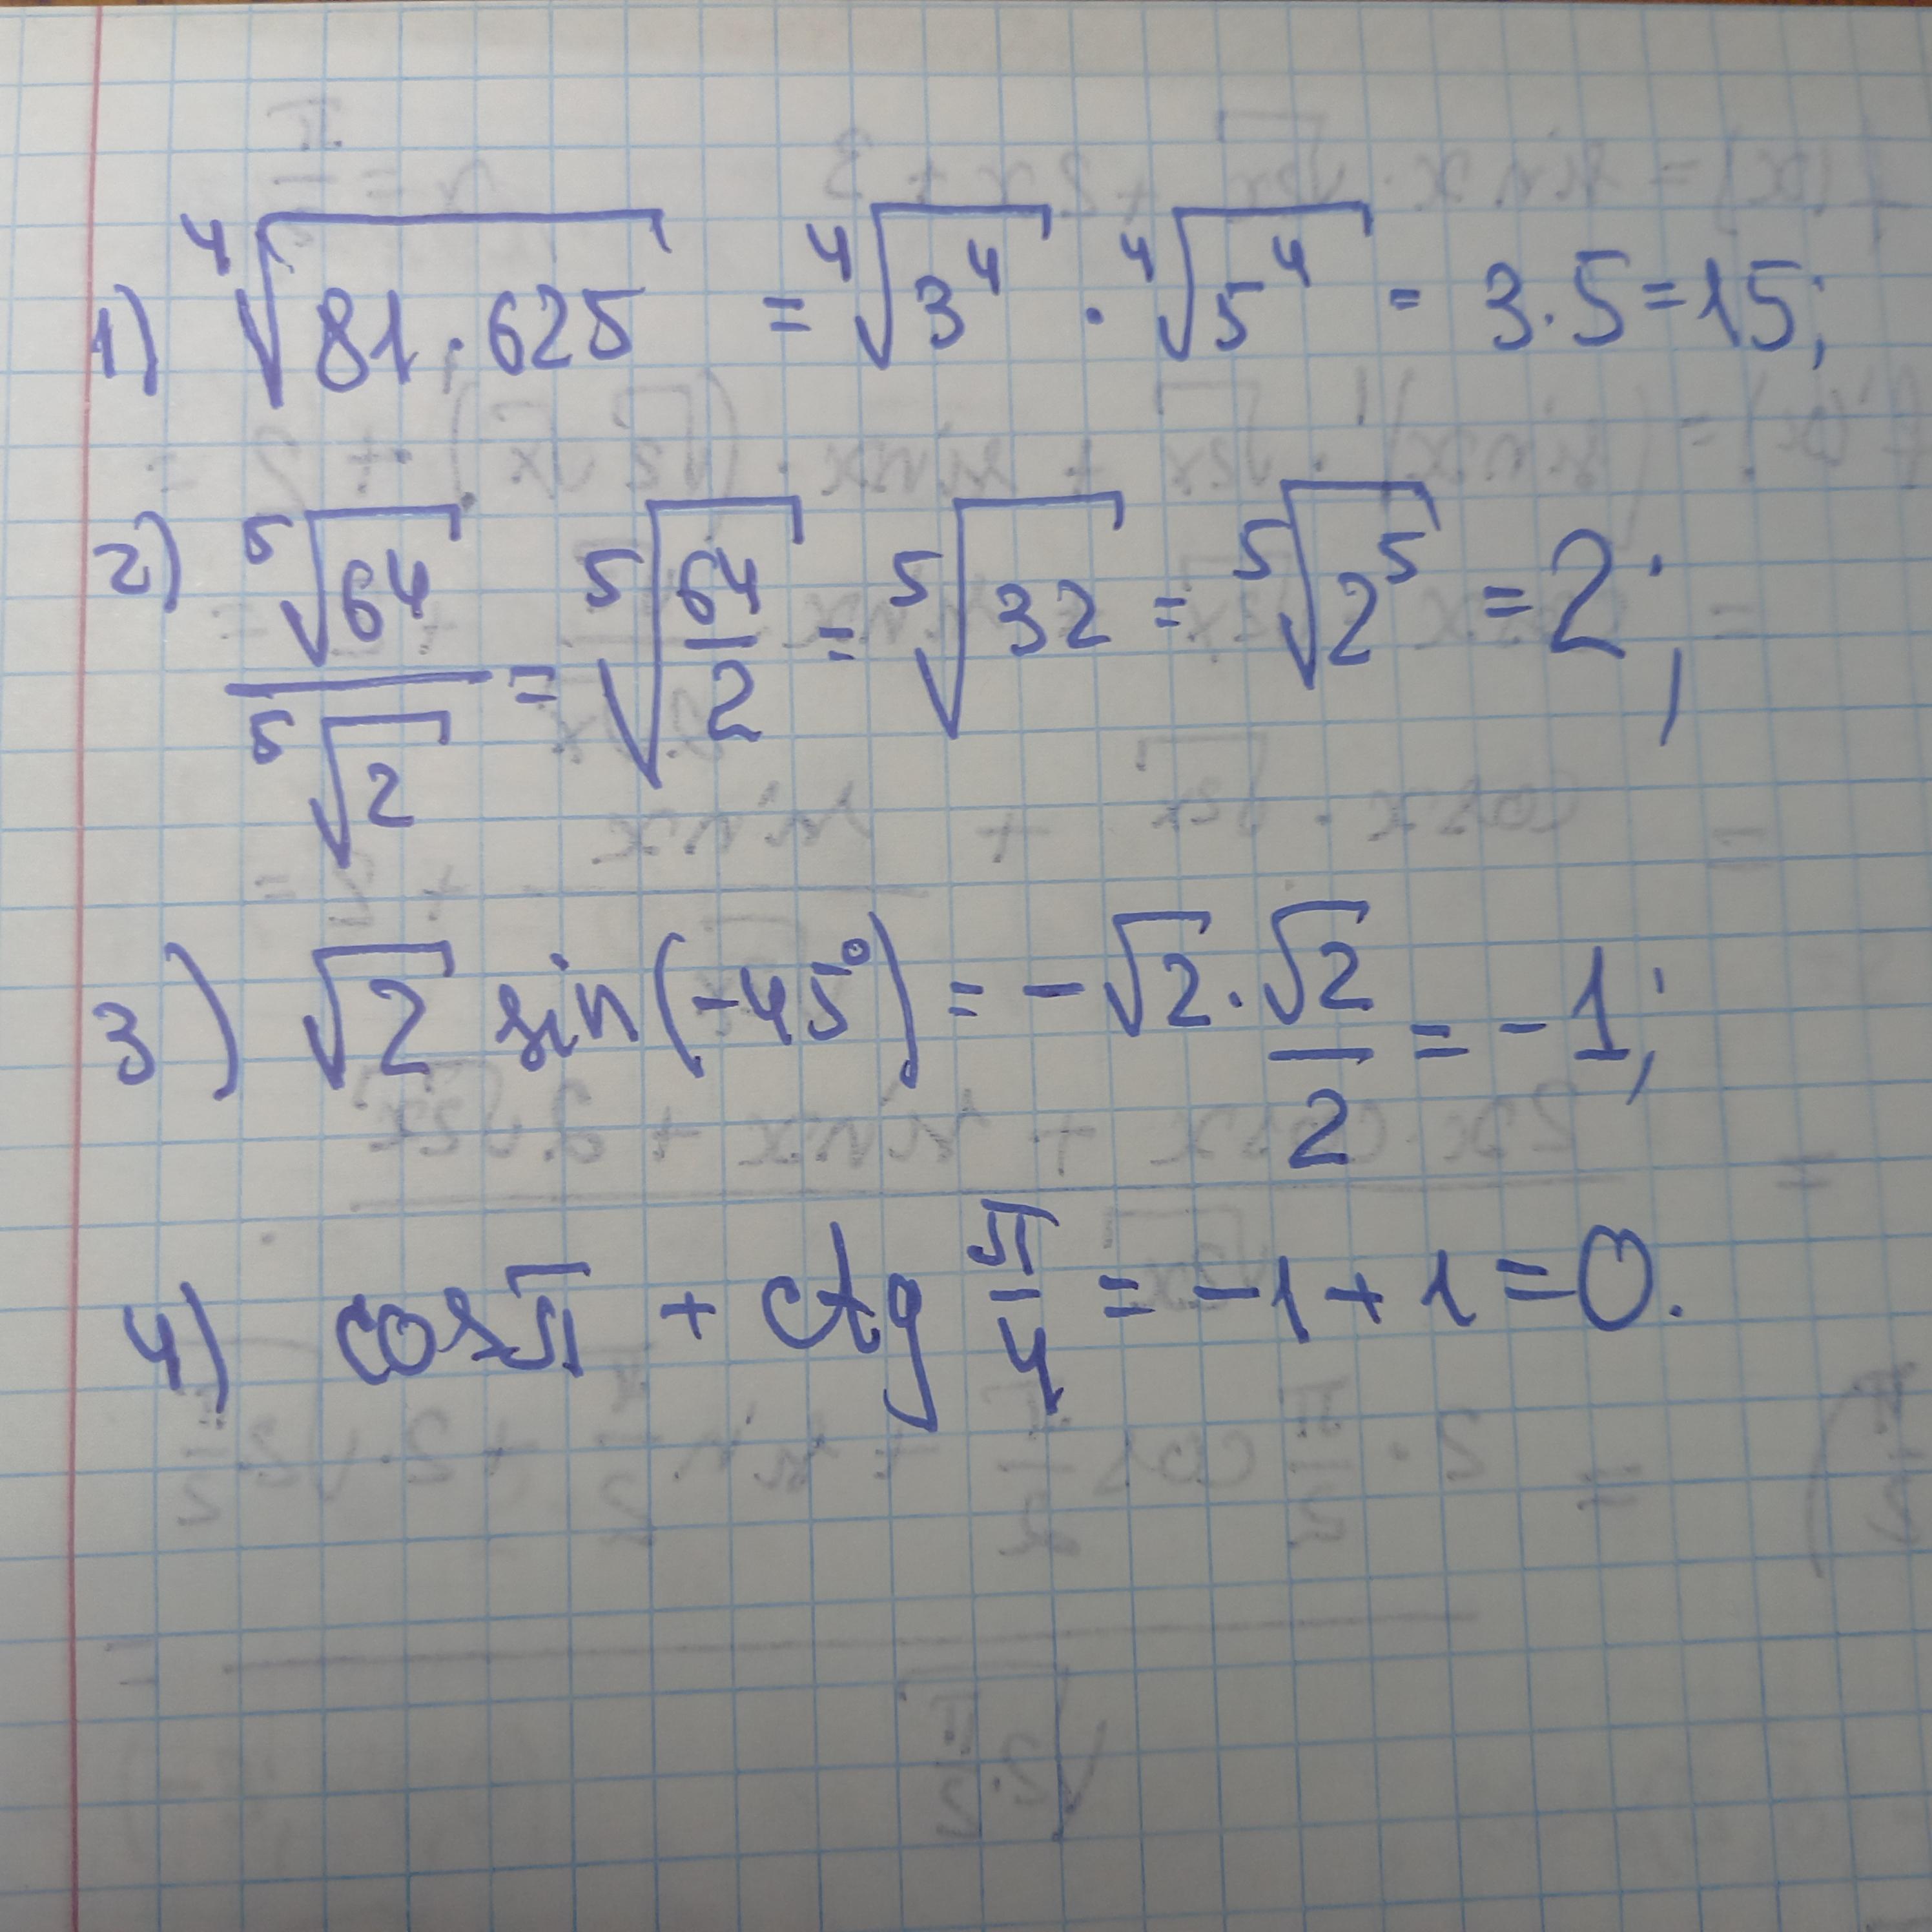 1) ⁴√(81·625) = ⁴√(3⁴) · ⁴√(5⁴) = 3·5=15;
2) ⁵√64 / ⁵√2 = ⁵√(64/2) = ⁵√32 = ⁵√(2⁵) = 2;
3) √2 sin(-45°) = -√2 · √2/2 = -1;
4) cosπ + ctg π/4 = -1+1=0.